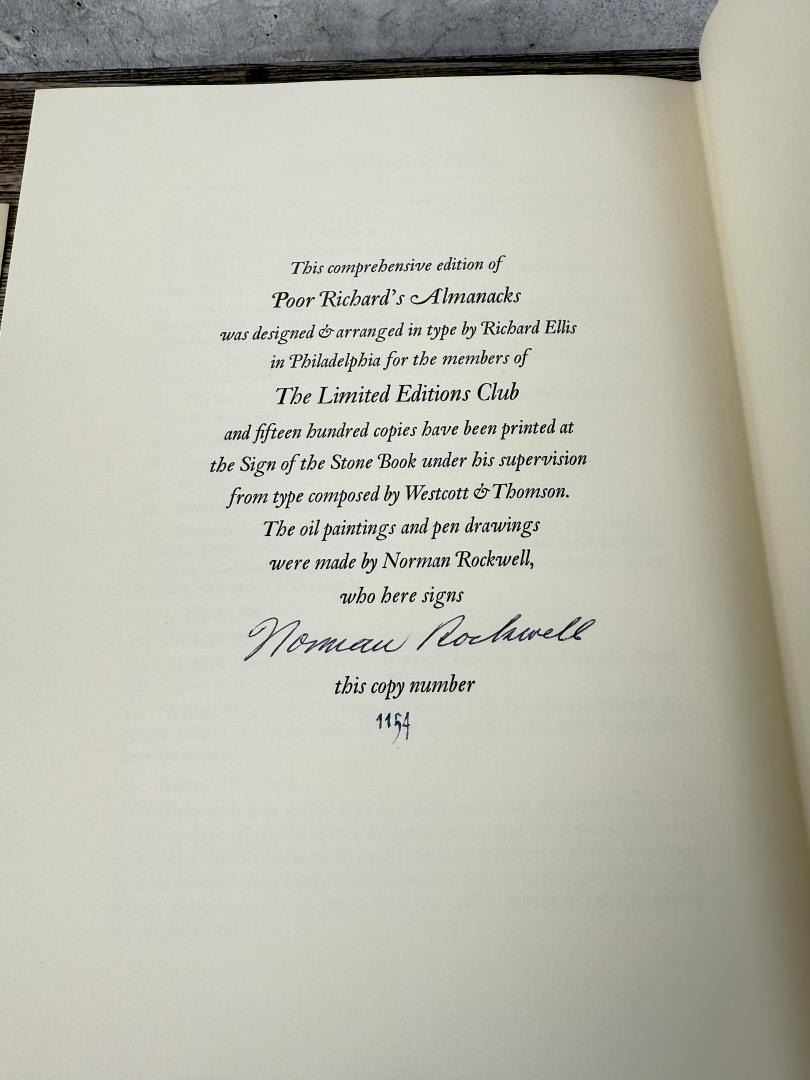 This comprehensive edition of
Poor Richard's Almanacks
was designed & arranged in type by Richard Ellis
in Philadelphia for the members of
The Limited Editions Club
and fifteen hundred copies have been printed at
the Sign of the Stone Book under his supervision
from type composed by Westcott & Thomson.
The oil paintings and pen drawings
were made by Norman Rockwell,
who here signs
Norman Rockwell
this copy number
1154